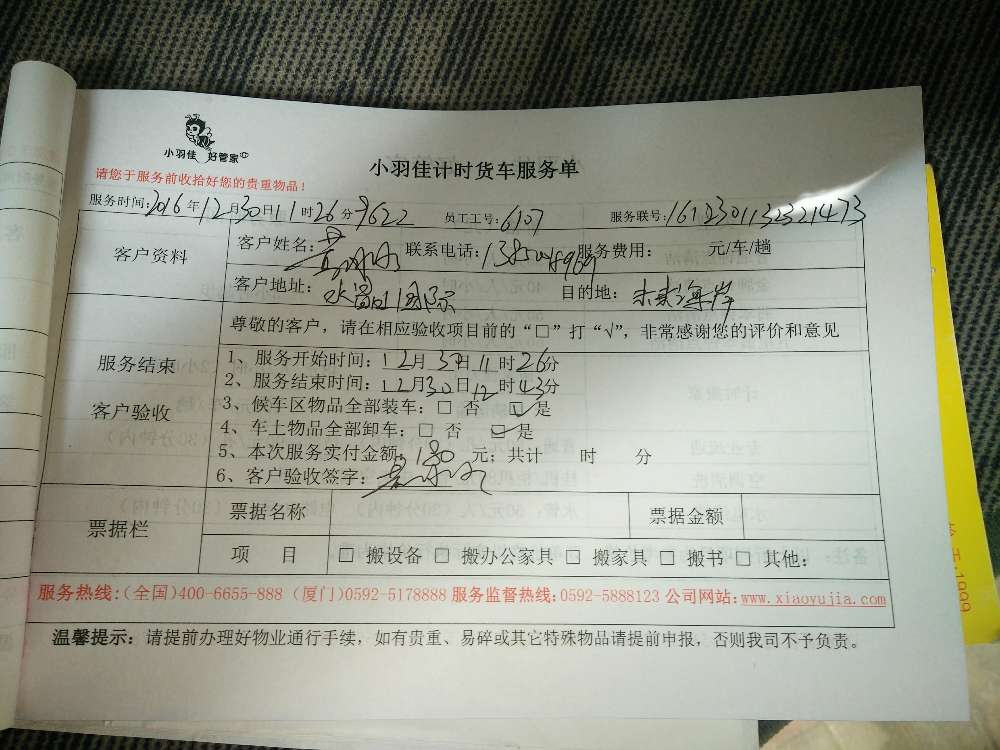 小羽佳 好管家
小羽佳计时货车服务单
请您于服务前收拾好您的贵重物品！
服务时间：2016年12月30日11时26分 9622 员工工号：6107 服务联号：1612301132321473
客户资料
客户姓名： 联系电话： 服务费用： 元/车/趟
客户地址： 国际 目的地：未来海岸
尊敬的客户，请在相应验收项目前的“□”打“√”，非常感谢您的评价和意见
服务结束
客户验收
1、服务开始时间：12月30日11时26分
2、服务结束时间：12月30日12时43分
3、候车区物品全部装车：□ 否 ☑ 是
4、车上物品全部卸车：□ 否 ☑ 是
5、本次服务实付金额：180 元；共计 时 分
6、客户验收签字：
票据栏
票据名称 票据金额
项 目 □ 搬设备 □ 搬办公家具 □ 搬家具 □ 搬书 □ 其他：
服务热线：(全国)400-6655-888 (厦门)0592-5178888 服务监督热线：0592-5888123 公司网站：www.xiaoyujia.com
温馨提示：请提前办理好物业通行手续，如有贵重、易碎或其它特殊物品请提前申报，否则我司不予负责。